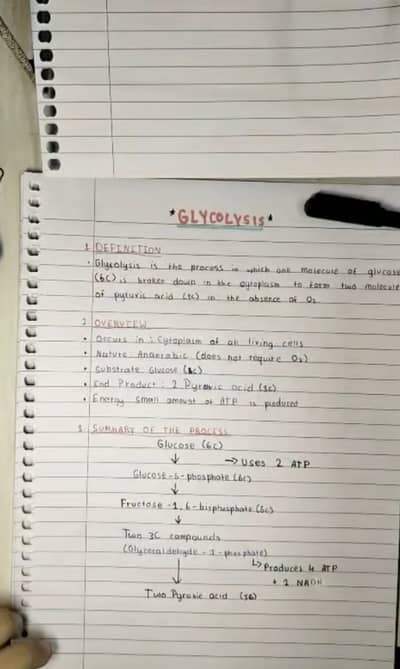 *GLYCOLYSIS*
1 DEFINITION
• Glycolysis is the process in which one molecule of glucose
(6C) is broken down in the cytoplasm to form two molecule
of pyruvic acid (3C) in the absence of O₂
2 OVERVIEW
• Occurs in : Cytoplasm of all living cells
• Nature Anaerobic (does not require O₂)
• Substrate Glucose (6C)
• End Product : 2 Pyruvic acid (3C)
• Energy small amount of ATP is produced
SUMMARY OF THE PROCESS
Glucose (6C)
↓ → Uses 2 ATP
Glucose-6-phosphate (6C)
↓
Fructose-1,6-bisphosphate (6C)
↓
Two 3C compounds
(Glyceraldehyde-3-phosphate)
↓ ↳ Produces 4 ATP
+ 2 NADH
Two Pyruvic acid